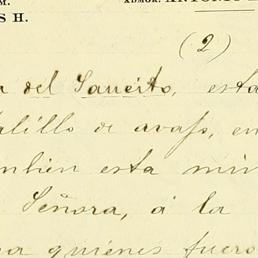 M.
ADMOR. ANTONIO
S H.
(2)
del Saucito, esta
alillo de avajo, en
mbien esta min
Señora, á la
a quienes fuero